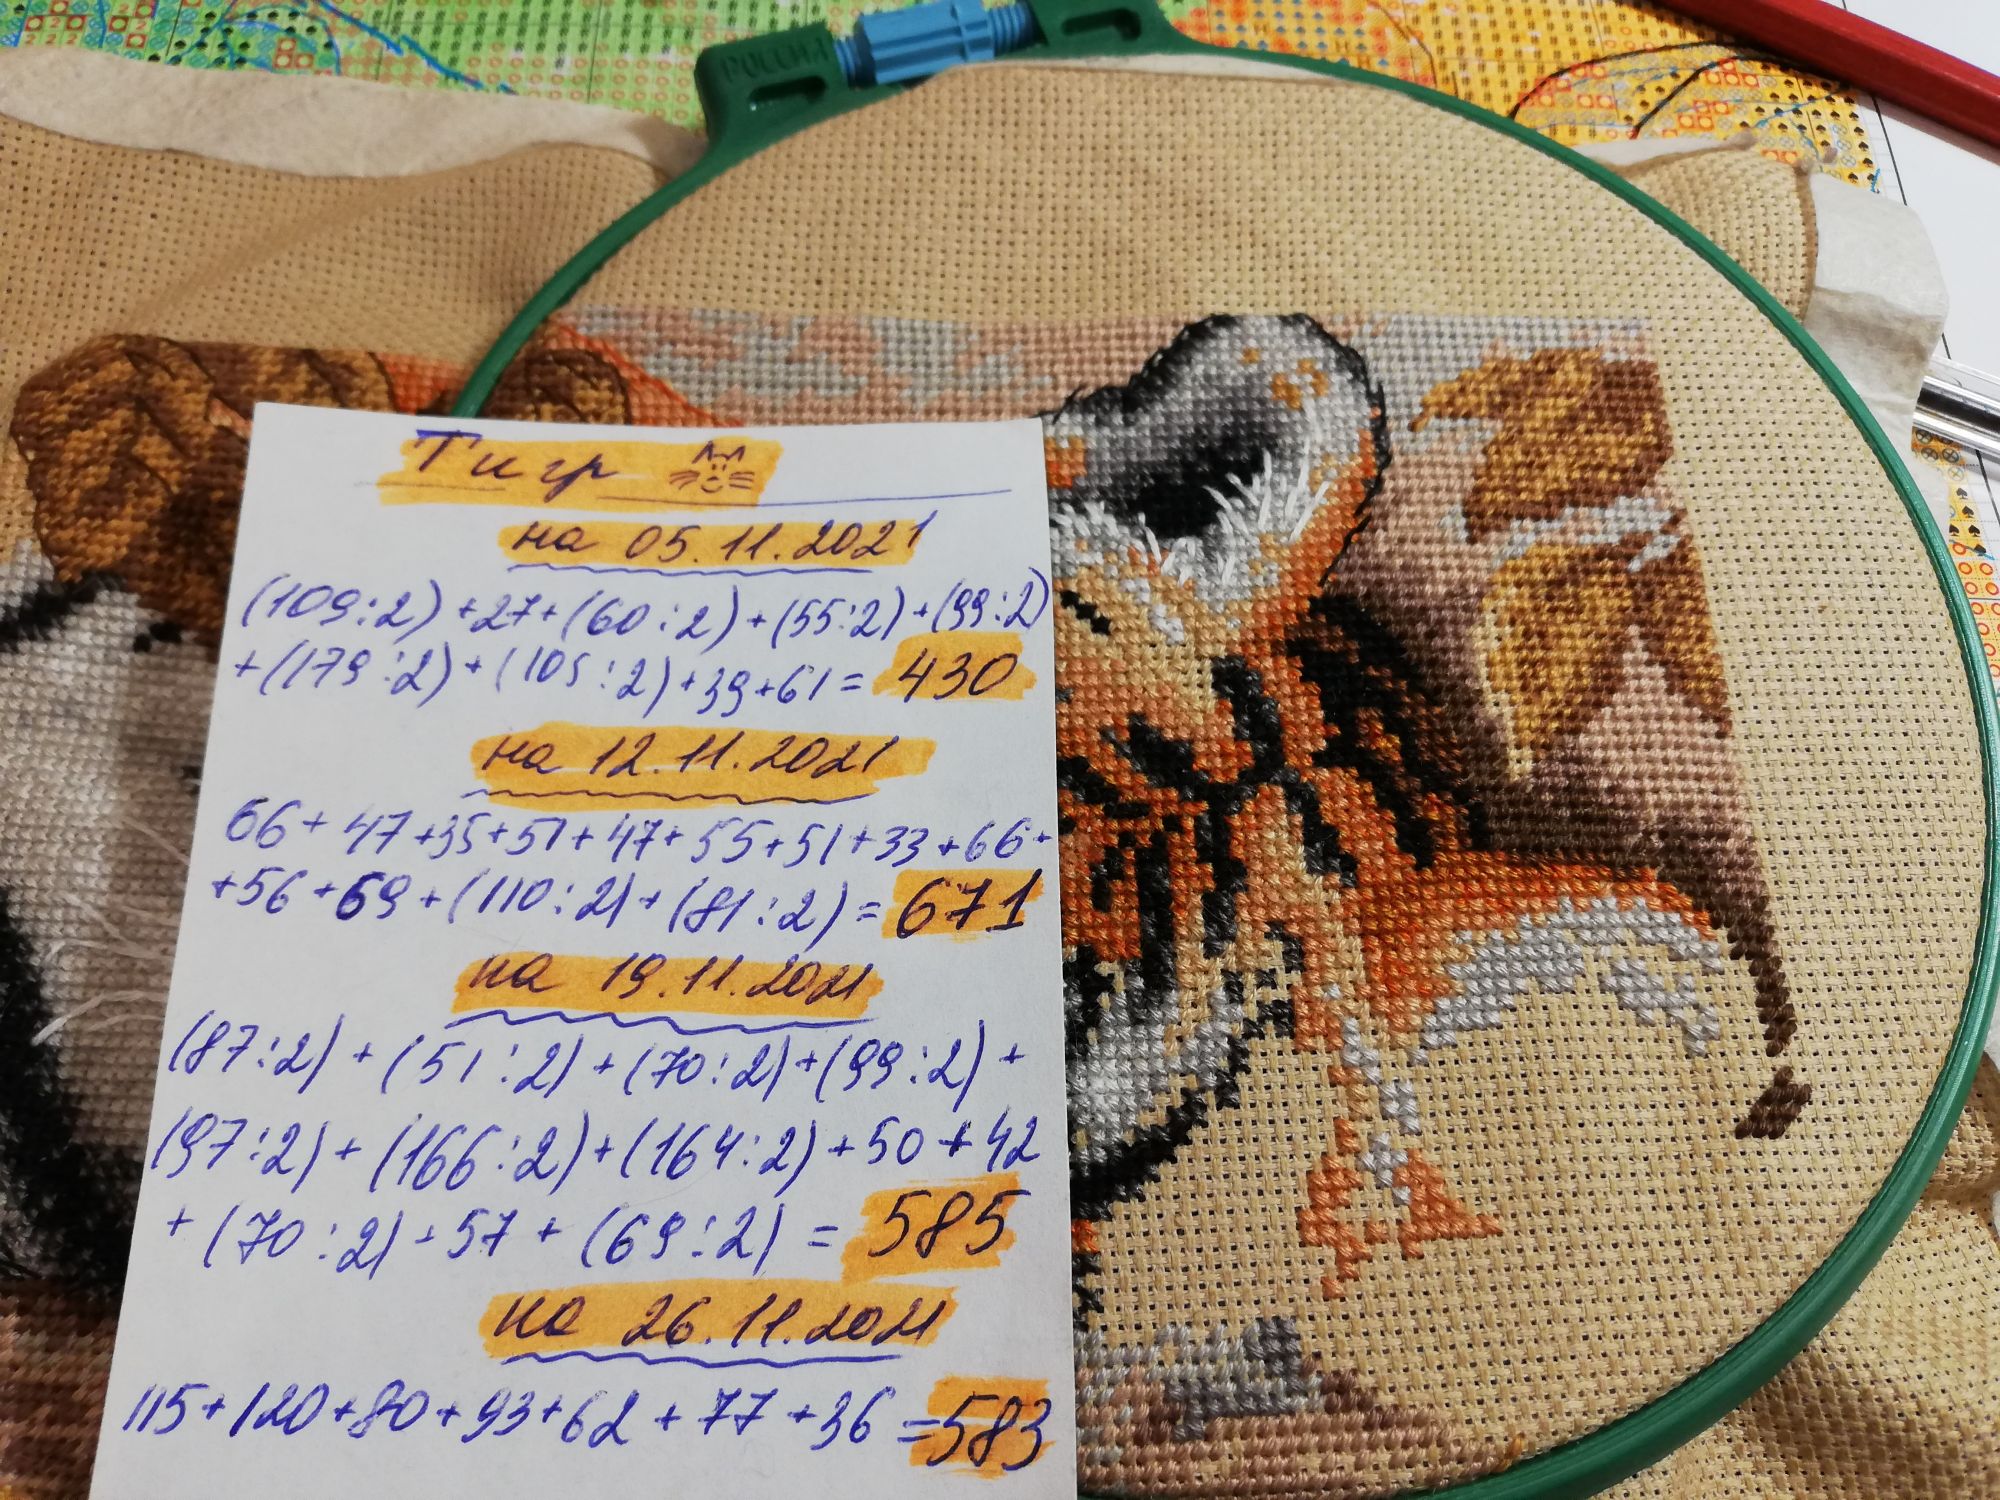 РОССИЯ
Тигр
на 05.11.2021
(109:2)+27+(60:2)+(55:2)+(99:2)
+(179:2)+(105:2)+39+61=430
на 12.11.2021
66+47+35+51+47+55+51+33+66+
+56+69+(110:2)+(81:2)=671
на 19.11.2021
(87:2)+(51:2)+(70:2)+(99:2)+
(97:2)+(166:2)+(164:2)+50+42
+(70:2)+57+(69:2)=585
на 26.11.2021
115+120+80+93+62+77+36=583